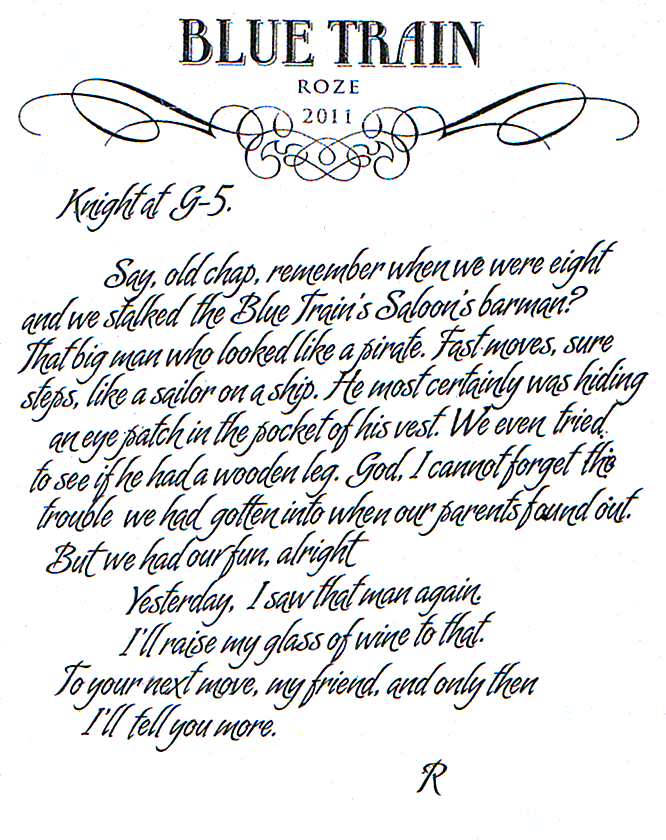 BLUE TRAIN
ROZE
2011
Knight at G-5.
Say, old chap, remember when we were eight
and we stalked the Blue Train's Saloon's barman?
That big man who looked like a pirate. Fast moves, sure
steps, like a sailor on a ship. He most certainly was hiding
an eye patch in the pocket of his vest. We even tried
to see if he had a wooden leg. God, I cannot forget the
trouble we had gotten into when our parents found out.
But we had our fun, alright
Yesterday, I saw that man again.
I'll raise my glass of wine to that.
To your next move, my friend, and only then
I'll tell you more.
R